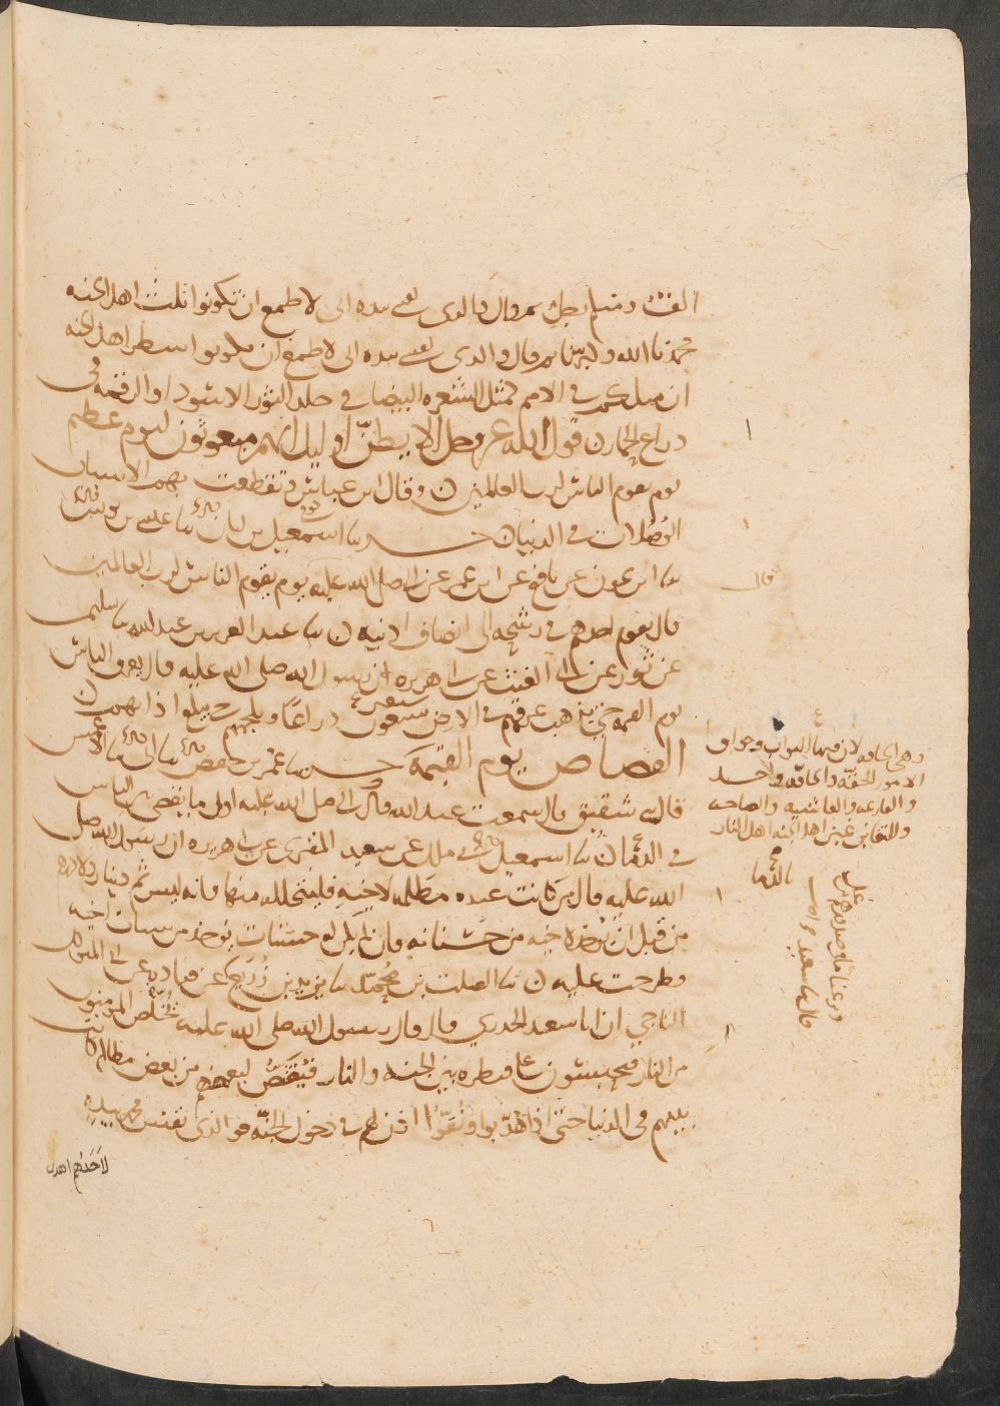 الف ومنكم رجل ثم قال والذى نفسى بيده انى لاطمع ان تكونوا ثلث اهل الجنه
فحمدنا الله وكبرنا ثم قال والذى نفسى بيده انى لاطمع ان تكونوا شطر اهل الجنه
ان مثلكم فى الامم كمثل الشعره البيضا فى جلد الثور الاسود او الرقمه فى
ذراع الحمار ن قول الله عز وجل الا يظن اوليك انهم مبعوثون ليوم عظيم
يوم يقوم الناس لرب العالمين ن وقال ابن عباس وتقطعت بهم الاسباب
الوصلات فى الدنيا ن حدثنا اسمعيل بن ابان نا عيسى بن يونس
نا ابن عون عن نافع عن ابن عمر عن النبى صلى الله عليه يوم يقوم الناس لرب العالمين
قال يقوم احدهم فى رشحه الى انصاف اذنيه ن نا عبد العزيز بن عبد الله نا سليمن
عن ثور عن ابى الغيث عن ابى هريره ان رسول الله صلى الله عليه قال يعرق الناس
يوم القيمه حتى يذهب عرقهم فى الارض سبعون ذراعا ويلجمهم حتى يبلغ اذانهم ن
القصاص يوم القيمة حدثنا عمر بن حفص نا ابى نا الاعمش
قال نى شقيق قال سمعت عبد الله قال النبى صلى الله عليه اول ما يقضى بين الناس
فى الدما ن نا اسمعيل نى ملك عن سعيد المقبرى عن ابى هريره ان رسول الله صلى
الله عليه قال من كانت عنده مظلمه لاخيه فليتحلله منها فانه ليس ثم دينار ولا درهم
من قبل ان يؤخذ لاخيه من حسناته فان لم يكن له حسنات اخذ من سيات اخيه
فطرحت عليه ن نا الصلت بن محمد نا يزيد بن زريع نا عن قتاده عن ابى المتوكل
الناجي ان ابا سعيد الخدري قال قال رسول الله صلى الله عليه يخلص المومنون
من النار فيحبسون على قنطره بين الجنه والنار فيقص لبعضهم من بعض مظالم كانت
بينهم فى الدنيا حتى اذا هذبوا ونقوا اذن لهم فى دخول الجنة فوالذى نفس محمد بيده
لاحدهم اهدى
قال
وهى الحاقه لان فيها الثواب وحواق
الامور الحقة والحاقه واحد
والقارعه والغاشيه والصاخه
والتغابن غبن اهل الجنه اهل النار
بالدما